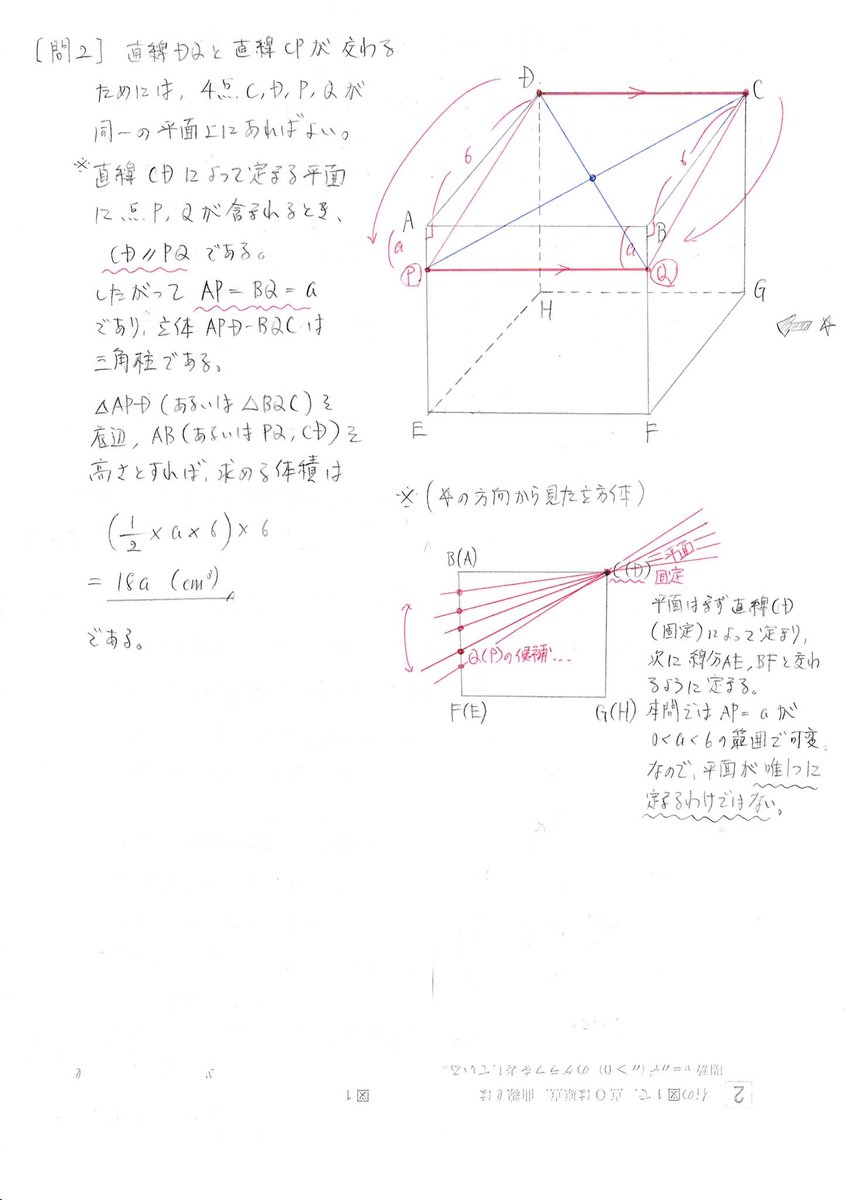 [問2] 直線DQと直線CPが交わる
ためには、4点C,D,P,Qが
同一の平面上にあればよい。
※直線CDによって定まる平面
に点P,Qが含まれるとき、
CD∥PQである。
したがってAP=BQ=a
であり、立体APD-BQCは
三角柱である。
△APD(あるいは△BQC)を
底辺,AB(あるいはPQ,CD)を
高さとすれば、求める体積は
(1/2×a×6)×6
=18a (cm³)
である。
D
C
6
6
A
B
a
a
P
Q
H
G
☆
E
F
※(☆の方向から見た立方体)
B(A)
C(D)
平面
固定
Q(P)の候補...
F(E)
G(H)
平面はまず直線CD
(固定)によって定まり,
次に線分AE,BFと交わ
るように定まる。
本問ではAP=aが
0<a<6の範囲で可変
なので、平面が唯1つに
定まるわけではない。
関数y=ax²(a>0)のグラフを表している。
2 右の図1で,点Oは原点,曲線ℓは
図1
y
ℓ